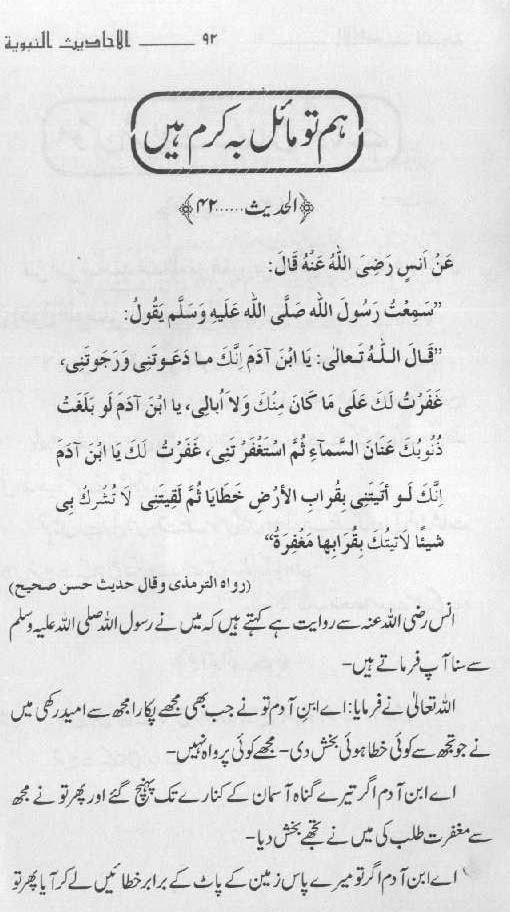 الاحاديث النبوية ــــــــ ۹۲
ہم تو مائل بہ کرم ہیں
﴿الحدیث......۴۲﴾
عَنْ اَنَسٍ رَضِیَ اللّٰهُ عَنْهُ قَالَ:
”سَمِعْتُ رَسُولَ اللّٰه صَلَّى اللّٰه عَلَيهِ وَسَلَّم يَقُولُ:
”قَالَ اللّٰهُ تَعَالٰى: يَا ابْنَ آدَمَ اِنَّكَ مَا دَعَوتَنِى وَرَجَوتَنِى،
غَفَرْتُ لَكَ عَلٰى مَا كَانَ مِنْكَ وَلَا اُبالِى، يا ابْنَ آدَمَ لَو بَلَغَتْ
ذُنُوبُكَ عَنَانَ السَّمآءِ ثُمَّ اسْتَغْفَرْ تَنِى، غَفَرْتُ لَكَ يَا ابْنَ آدَمَ
اِنَّكَ لَو أتَيْتَنِى بِقُرابِ الأرْضِ خَطَايَا ثُمَّ لَقِيتَنِى لَا تُشْرِكُ بِى
شَيئًا لَاتَيْتُكَ بِقُرَابِها مَغْفِرَةً“
(رواه الترمذى وقال حديث حسن صحيح)
انس رضی اللہ عنہ سے روایت ہے کہتے ہیں کہ میں نے رسول اللہ صلی اللہ علیہ وسلم
سے سنا آپ فرماتے ہیں-
اللہ تعالیٰ نے فرمایا: اے ابنِ آدم تو نے جب بھی مجھے پکارا مجھ سے امید رکھی میں
نے جو تجھ سے کوئی خطا ہوئی بخش دی- مجھے کوئی پرواہ نہیں-
اے ابن آدم اگر تیرے گناہ آسمان کے کنارے تک پہنچ گئے اور پھر تو نے مجھ
سے مغفرت طلب کی میں نے تجھے بخش دیا-
اے ابن آدم اگر تو میرے پاس زمین کے پاٹ کے برابر خطائیں لے کر آیا پھر تو